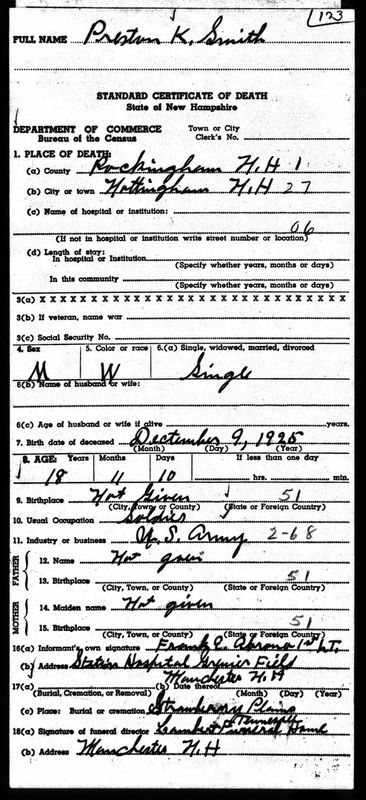 123
FULL NAME Preston K. Smith
STANDARD CERTIFICATE OF DEATH
State of New Hampshire
DEPARTMENT OF COMMERCE
Bureau of the Census
Town or City
Clerk's No.
1. PLACE OF DEATH:
(a) County Rockingham N.H 1
(b) City or town Nottingham N.H 27
(c) Name of hospital or institution:
06
(If not in hospital or institution write street number or location)
(d) Length of stay:
In hospital or Institution
(Specify whether years, months or days)
In this community
(Specify whether years, months or days)
3(a) X X X X X X X X X X X X X X X X X X X X X X X X X X X X
3(b) If veteran, name war
3(c) Social Security No.
4. Sex 5. Color or race 6.(a) Single, widowed, married, divorced
M W Single
6(b) Name of husband or wife:
6(c) Age of husband or wife if alive years.
7. Birth date of deceased December 9, 1925
(Month) (Day) (Year)
8. AGE: Years Months Days If less than one day
18 11 10 hrs. min.
9. Birthplace Not Given 51
(City, Town, or County) (State or Foreign Country)
10. Usual Occupation Soldier
11. Industry or business U. S. Army 2-68
FATHER
12. Name Not given
13. Birthplace 51
(City, Town, or County) (State or Foreign Country)
MOTHER
14. Maiden name Not given
15. Birthplace 51
(City, Town, or County) (State or Foreign Country)
16(a) Informant's own signature Frank C. 1st LT.
(b) Address Station Hospital Grenier Field
Manchester N.H
17(a) (b) Date thereof
(Burial, Cremation, or Removal) (Month) (Day) (Year)
(c) Place: Burial or cremation Strawberry Plains
Tennessee
18(a) Signature of funeral director Lambert Funeral Home
(b) Address Manchester N.H